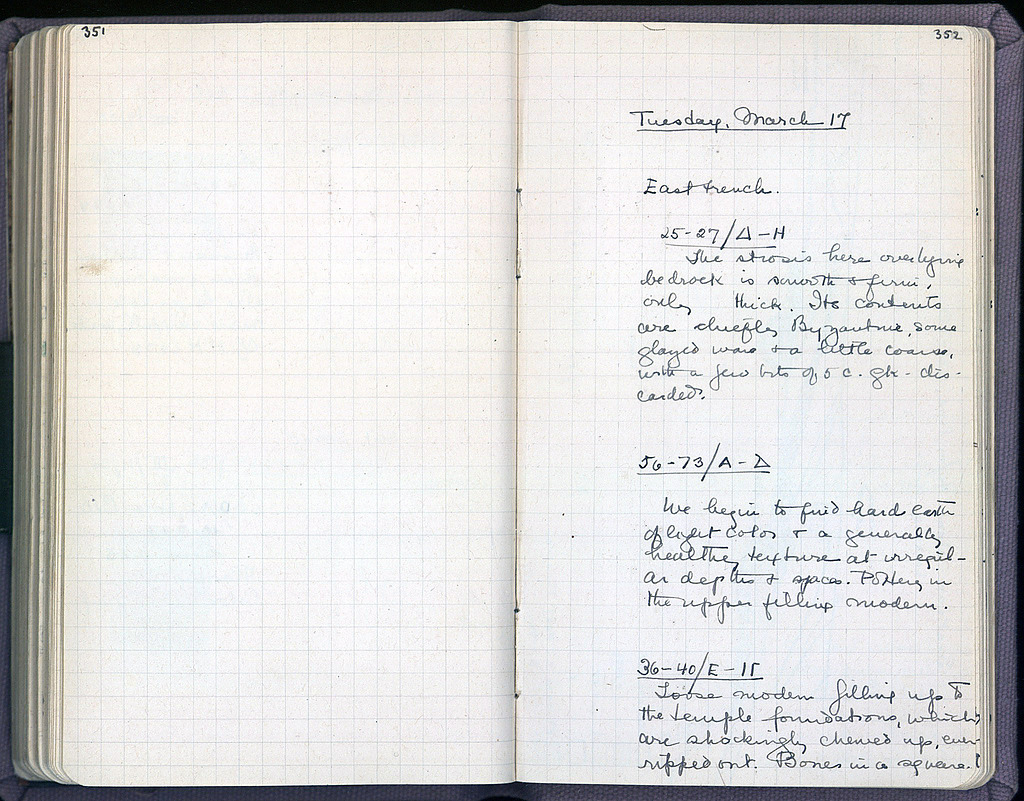 351
352
Tuesday, March 17
East trench.
25-27/Δ-H
The strosis here overlying
bedrock is smooth & firm,
only thick. Its contents
are chiefly Byzantine, some
glazed ware & a little coarse,
with a few bits of 5 c. gk - dis-
carded.
56-73/A-Δ
We begin to find hard earth
of light color & a generally
healthy texture at irregul-
ar depths & spaces. Pottery in
the upper filling modern.
36-40/E-
Loose modern filling up to
the temple foundations, which
are shockingly chewed up, even
ripped out. Bones in a square